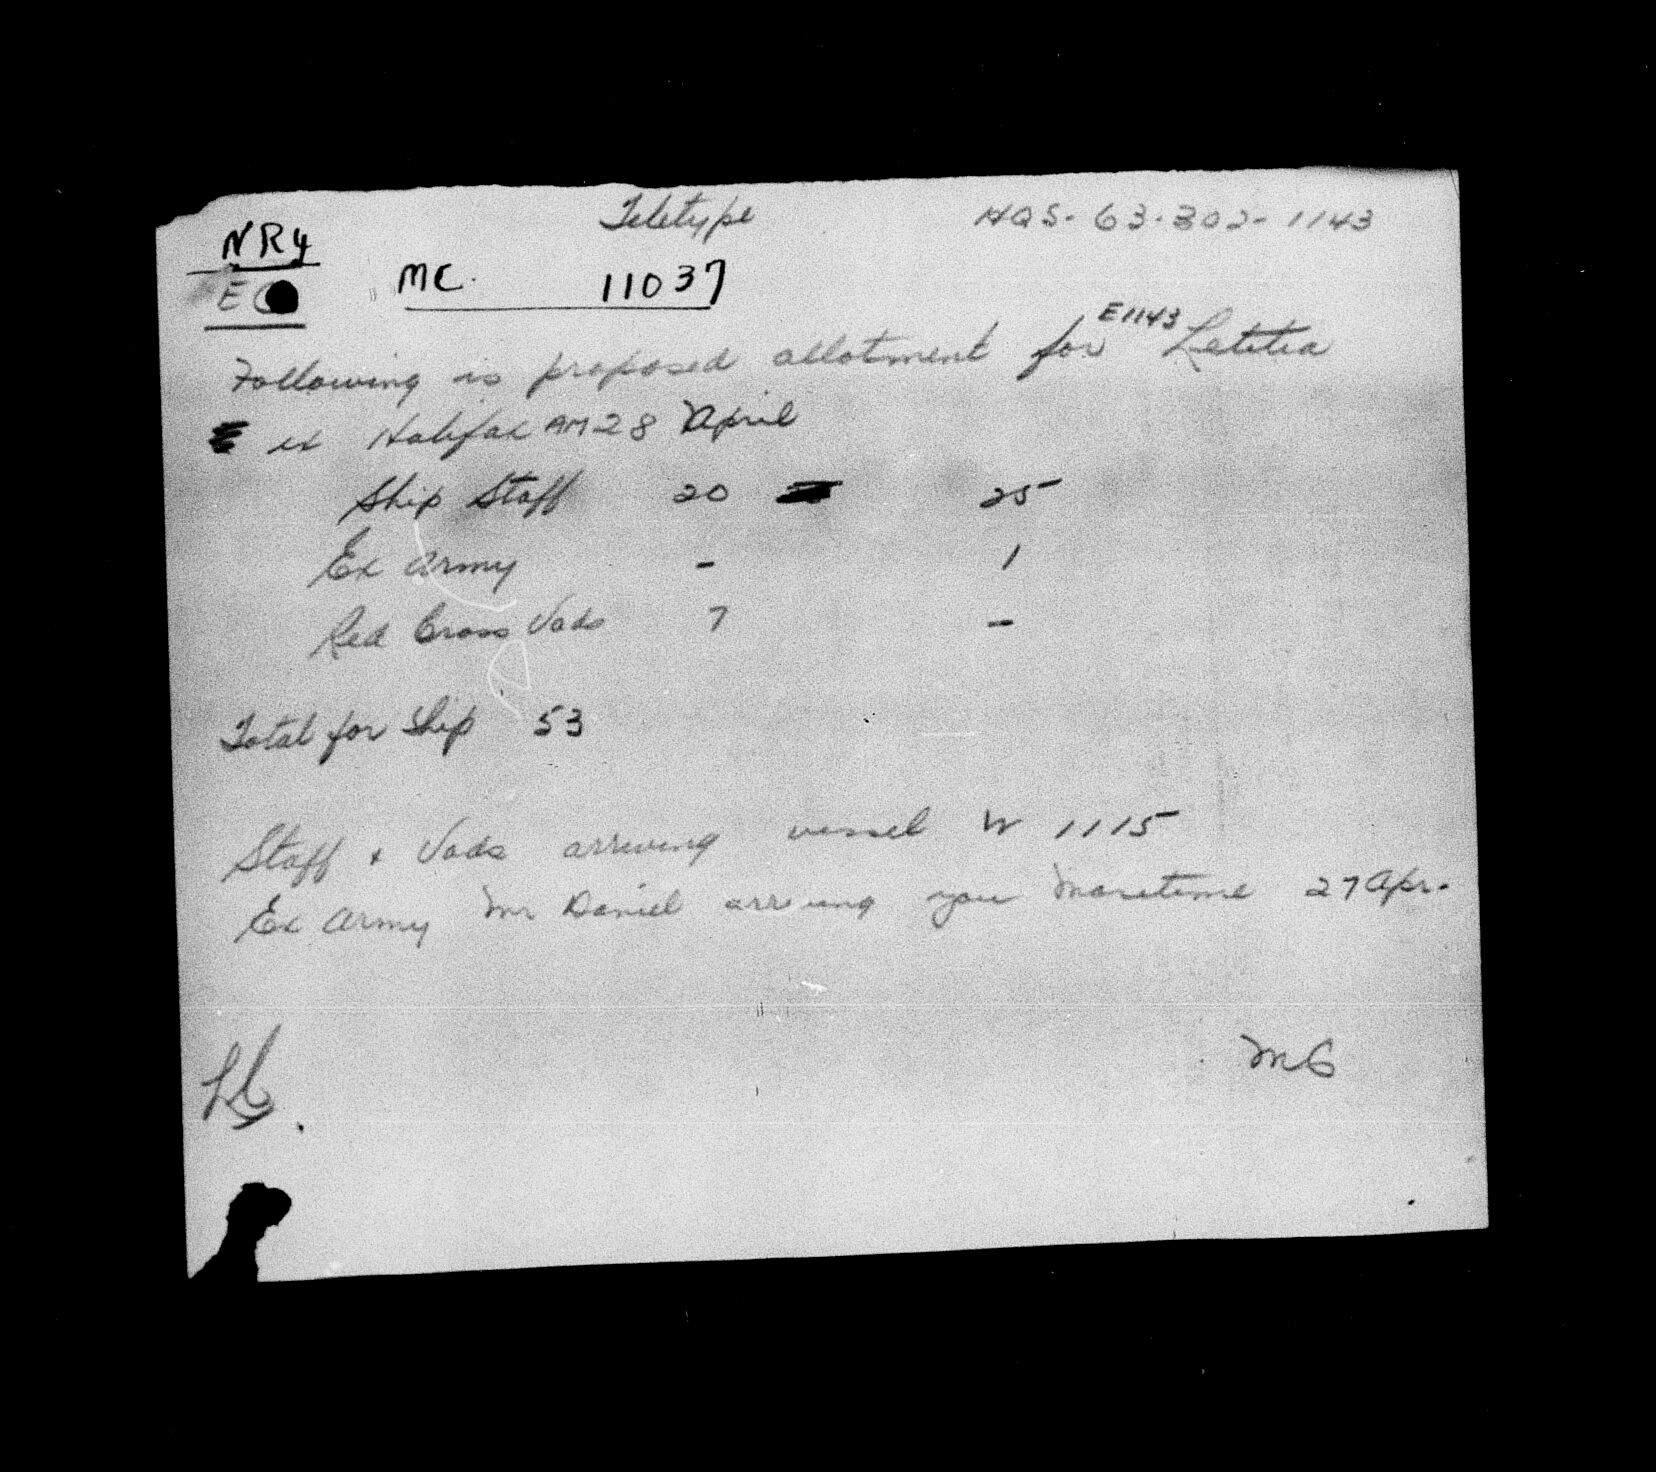 Teletype HQS-63-302-1143
NR4
MC. 11037
E
Following is proposed allotment for E1143 Letitia
ex Halifax AM 28 April
Ship Staff 20 25
Ex Army - 1
Red Cross Vads 7 -
Total for Ship 53
Staff + Vads arriving vessel W 1115
Ex Army Mr Daniel arriving you Maretime 27 Apr.